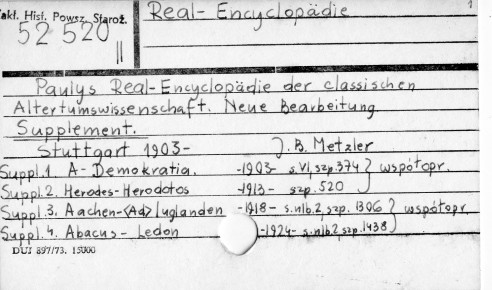 Zakł. Hist. Powsz. Staroż.
52 520
II
Real-Encyclopädie
1
Paulys Real-Encyclopädie der classischen
Altertumswissenschaft. Neue Bearbeitung
Supplement.
Stuttgart 1903- J. B. Metzler
Suppl.1. A- Demokratia. -1903- s.VI, szp.374 } współopr.
Suppl.2. Herodes-Herodotos -1913- szp.520
Suppl.3. Aachen-<Ad> Iuglandem -1918- s.nlb.2, szp.1306 } współopr.
Suppl.4. Abacus-Ledon -1924- s.nlb.2, szp.1438
DUJ 897/73. 15000